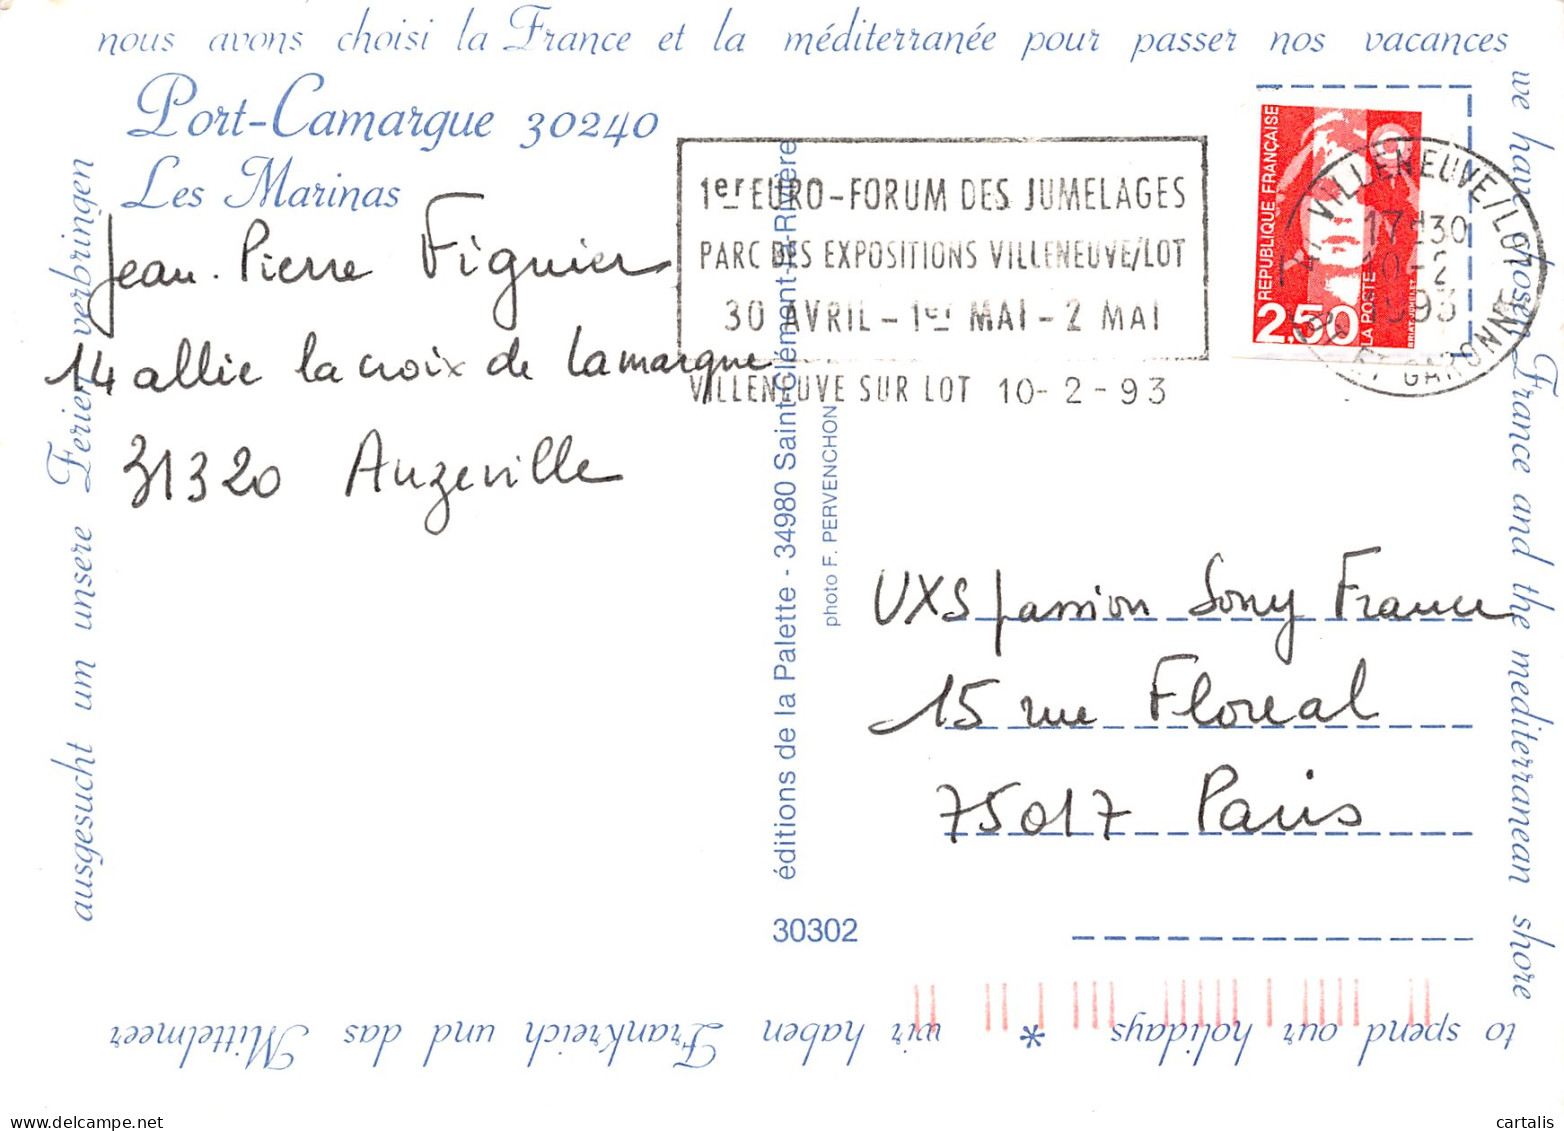 nous avons choisi la France et la méditerranée pour passer nos vacances
we have chosen France and the mediterranean shore
to spend our holidays * wir haben Frankreich und das Mittelmeer
ausgesucht um unsere Ferien verbringen
Port-Camargue 30240
Les Marinas
Jean-Pierre Figuier
14 allie la croix de Lamarque
31320 Auzeville
1er EURO-FORUM DES JUMELAGES
PARC DES EXPOSITIONS VILLENEUVE/LOT
30 AVRIL - 1er MAI - 2 MAI
VILLENEUVE SUR LOT 10-2-93
REPUBLIQUE FRANÇAISE
2,50
LA POSTE
VILLENEUVE/LOT
17H30
10-2
1993
ET GARONNE
éditions de la Palette - 34980 Saint-Clément-la-Rivière
photo F. PERVENCHON
UXS passion Sony France
15 rue Floreal
75017 Paris
30302
cartalis